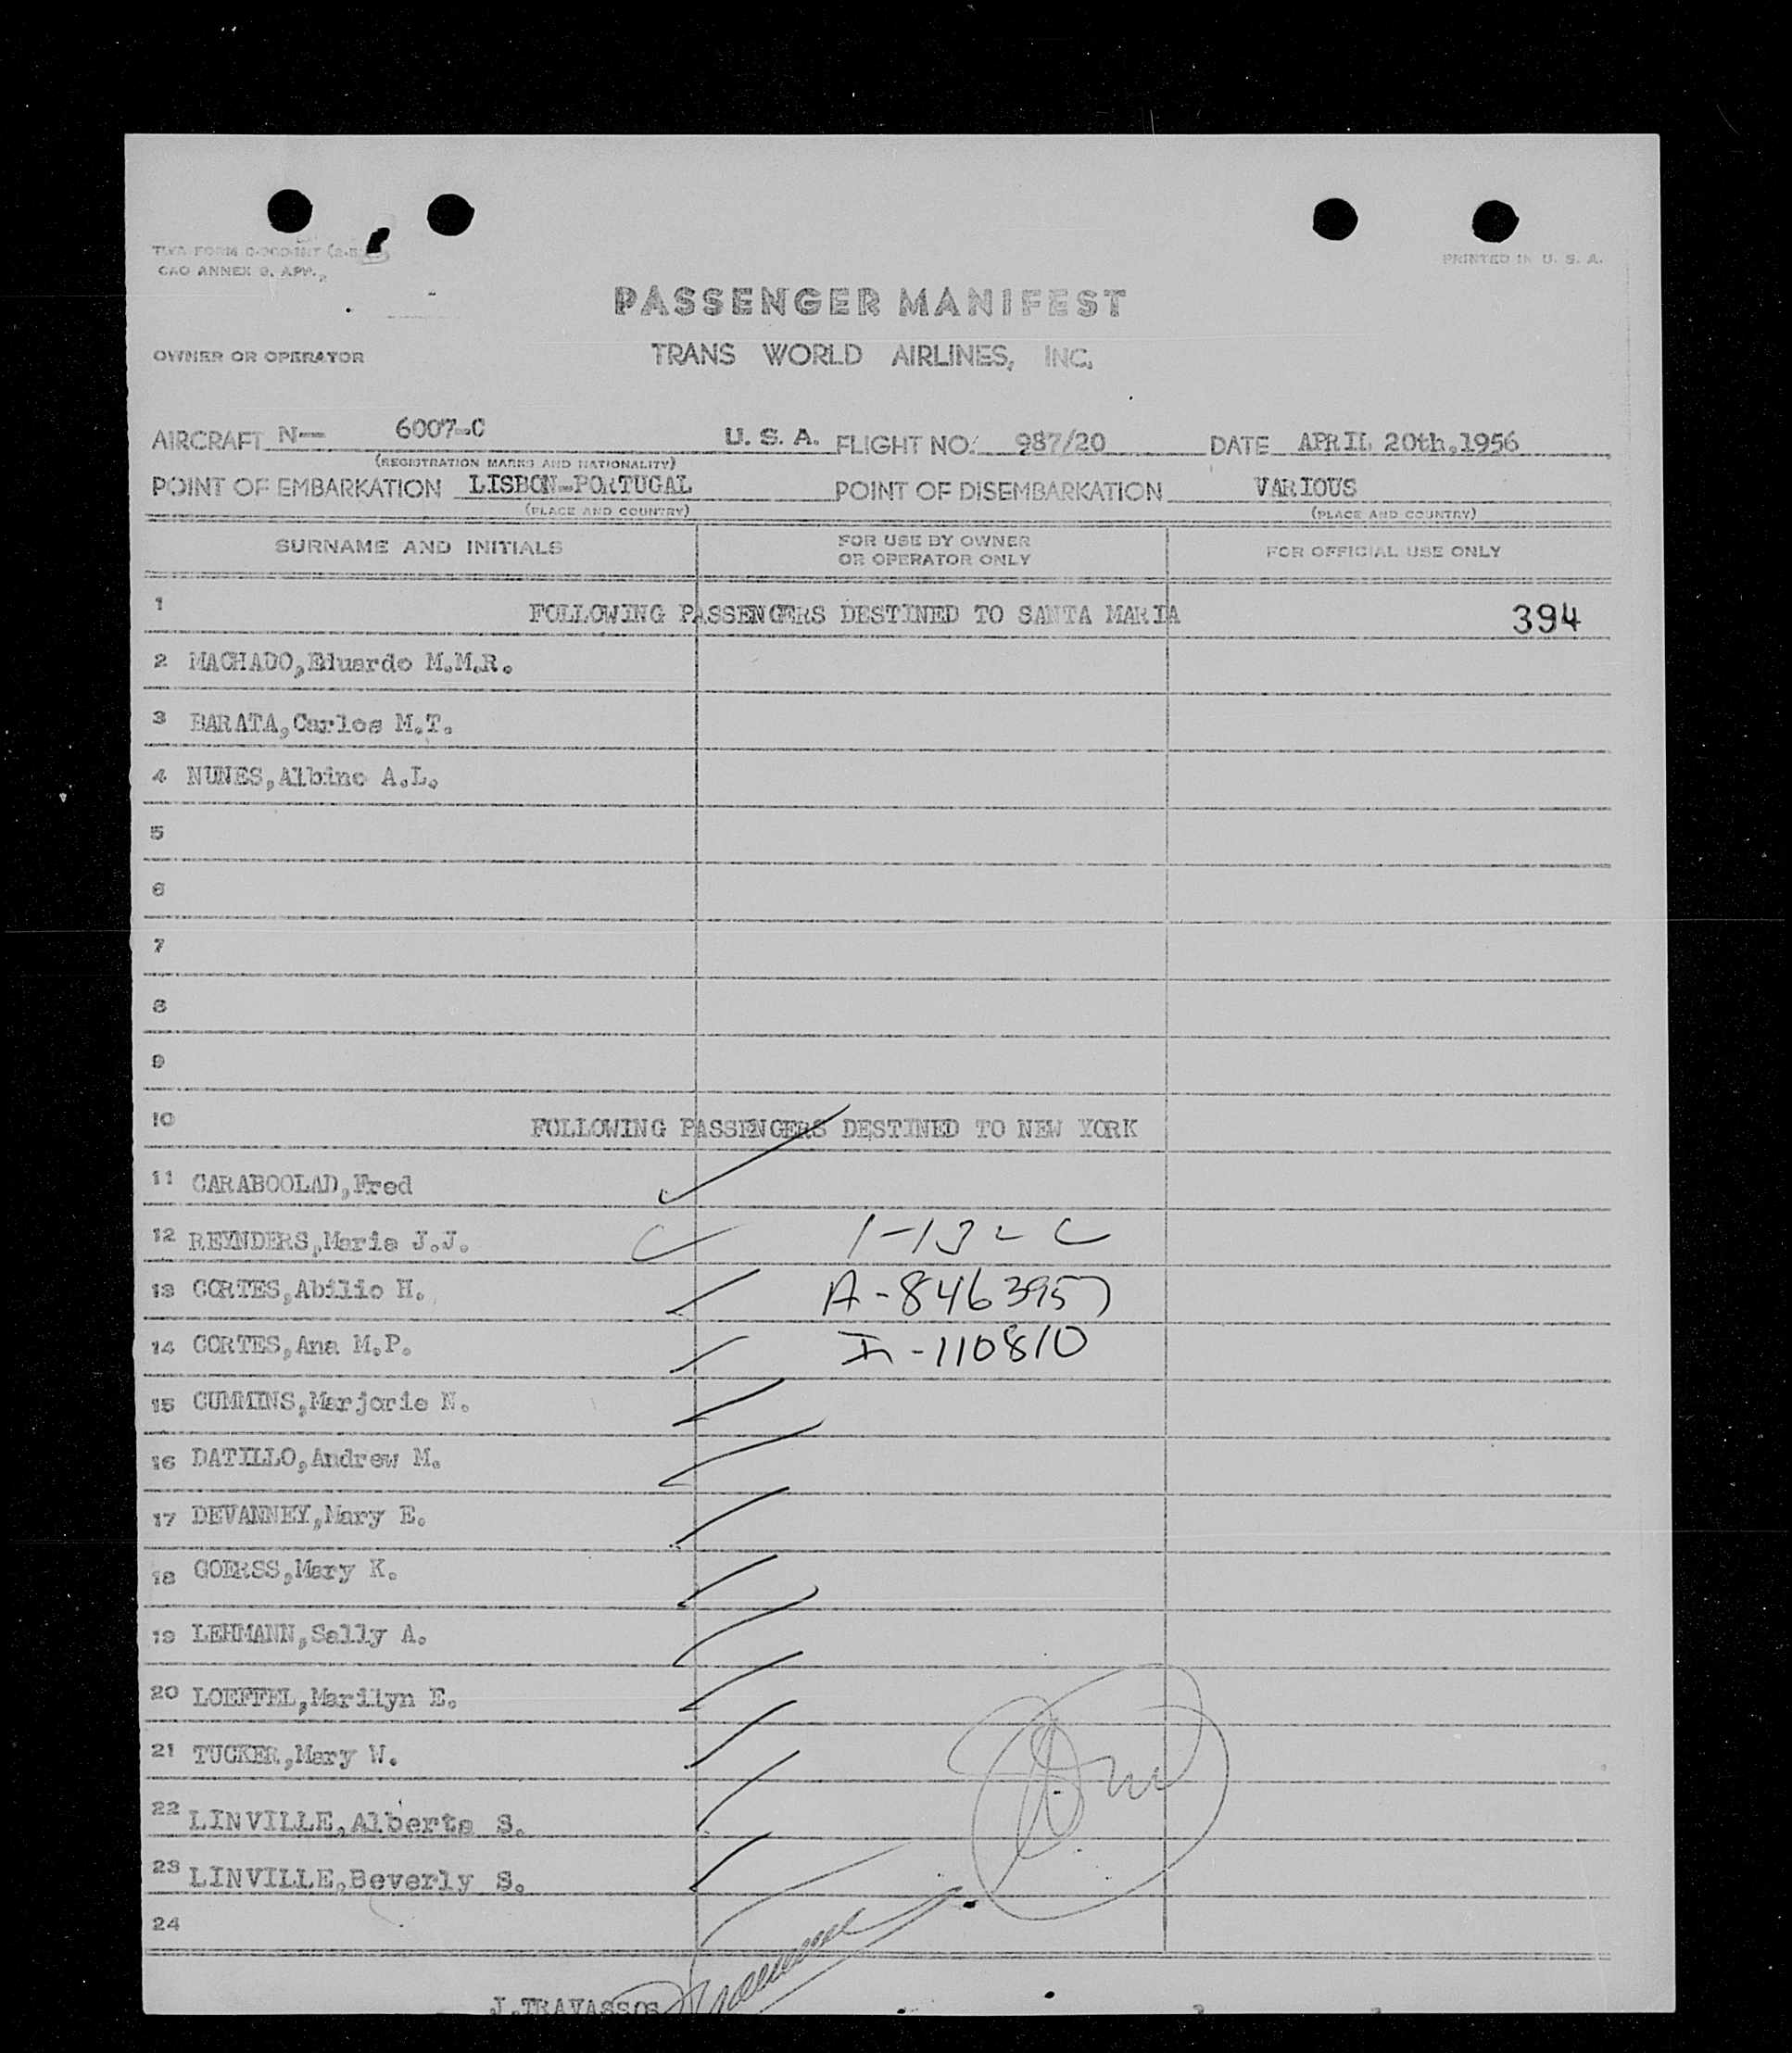 CAO ANNEX 9, APP.
PRINTED IN U. S. A.
PASSENGER MANIFEST
OWNER OR OPERATOR TRANS WORLD AIRLINES, INC.
AIRCRAFT N— 6007-C U. S. A. FLIGHT NO. 987/20 DATE APRIL 20th,1956
(REGISTRATION MARKS AND NATIONALITY)
POINT OF EMBARKATION LISBON-PORTUGAL POINT OF DISEMBARKATION VARIOUS
(PLACE AND COUNTRY) (PLACE AND COUNTRY)
SURNAME AND INITIALS FOR USE BY OWNER OR OPERATOR ONLY FOR OFFICIAL USE ONLY
1 FOLLOWING PASSENGERS DESTINED TO SANTA MARIA 394
2 MACHADO,Eduardo M.M.R.
3 BARATA,Carlos M.T.
4 NUNES,Albino A.L.
5
6
7
8
9
10 FOLLOWING PASSENGERS DESTINED TO NEW YORK
11 CARABOOLAD,Fred
12 REYNDERS,Marie J.J.
13 CORTES,Abilio H. A-8463957
14 CORTES,Ana M.P. -110810
15 CUMMINS,Marjorie N.
16 DATILLO,Andrew M.
17 DEVANNEY,Mary E.
18 GOERSS,Mary K.
19 LEHMANN,Sally A.
20 LOEFFEL,Marilyn E.
21 TUCKER,Mary W.
22 LINVILLE,Alberta S.
23 LINVILLE,Beverly S.
24
J.TRAVASSOS